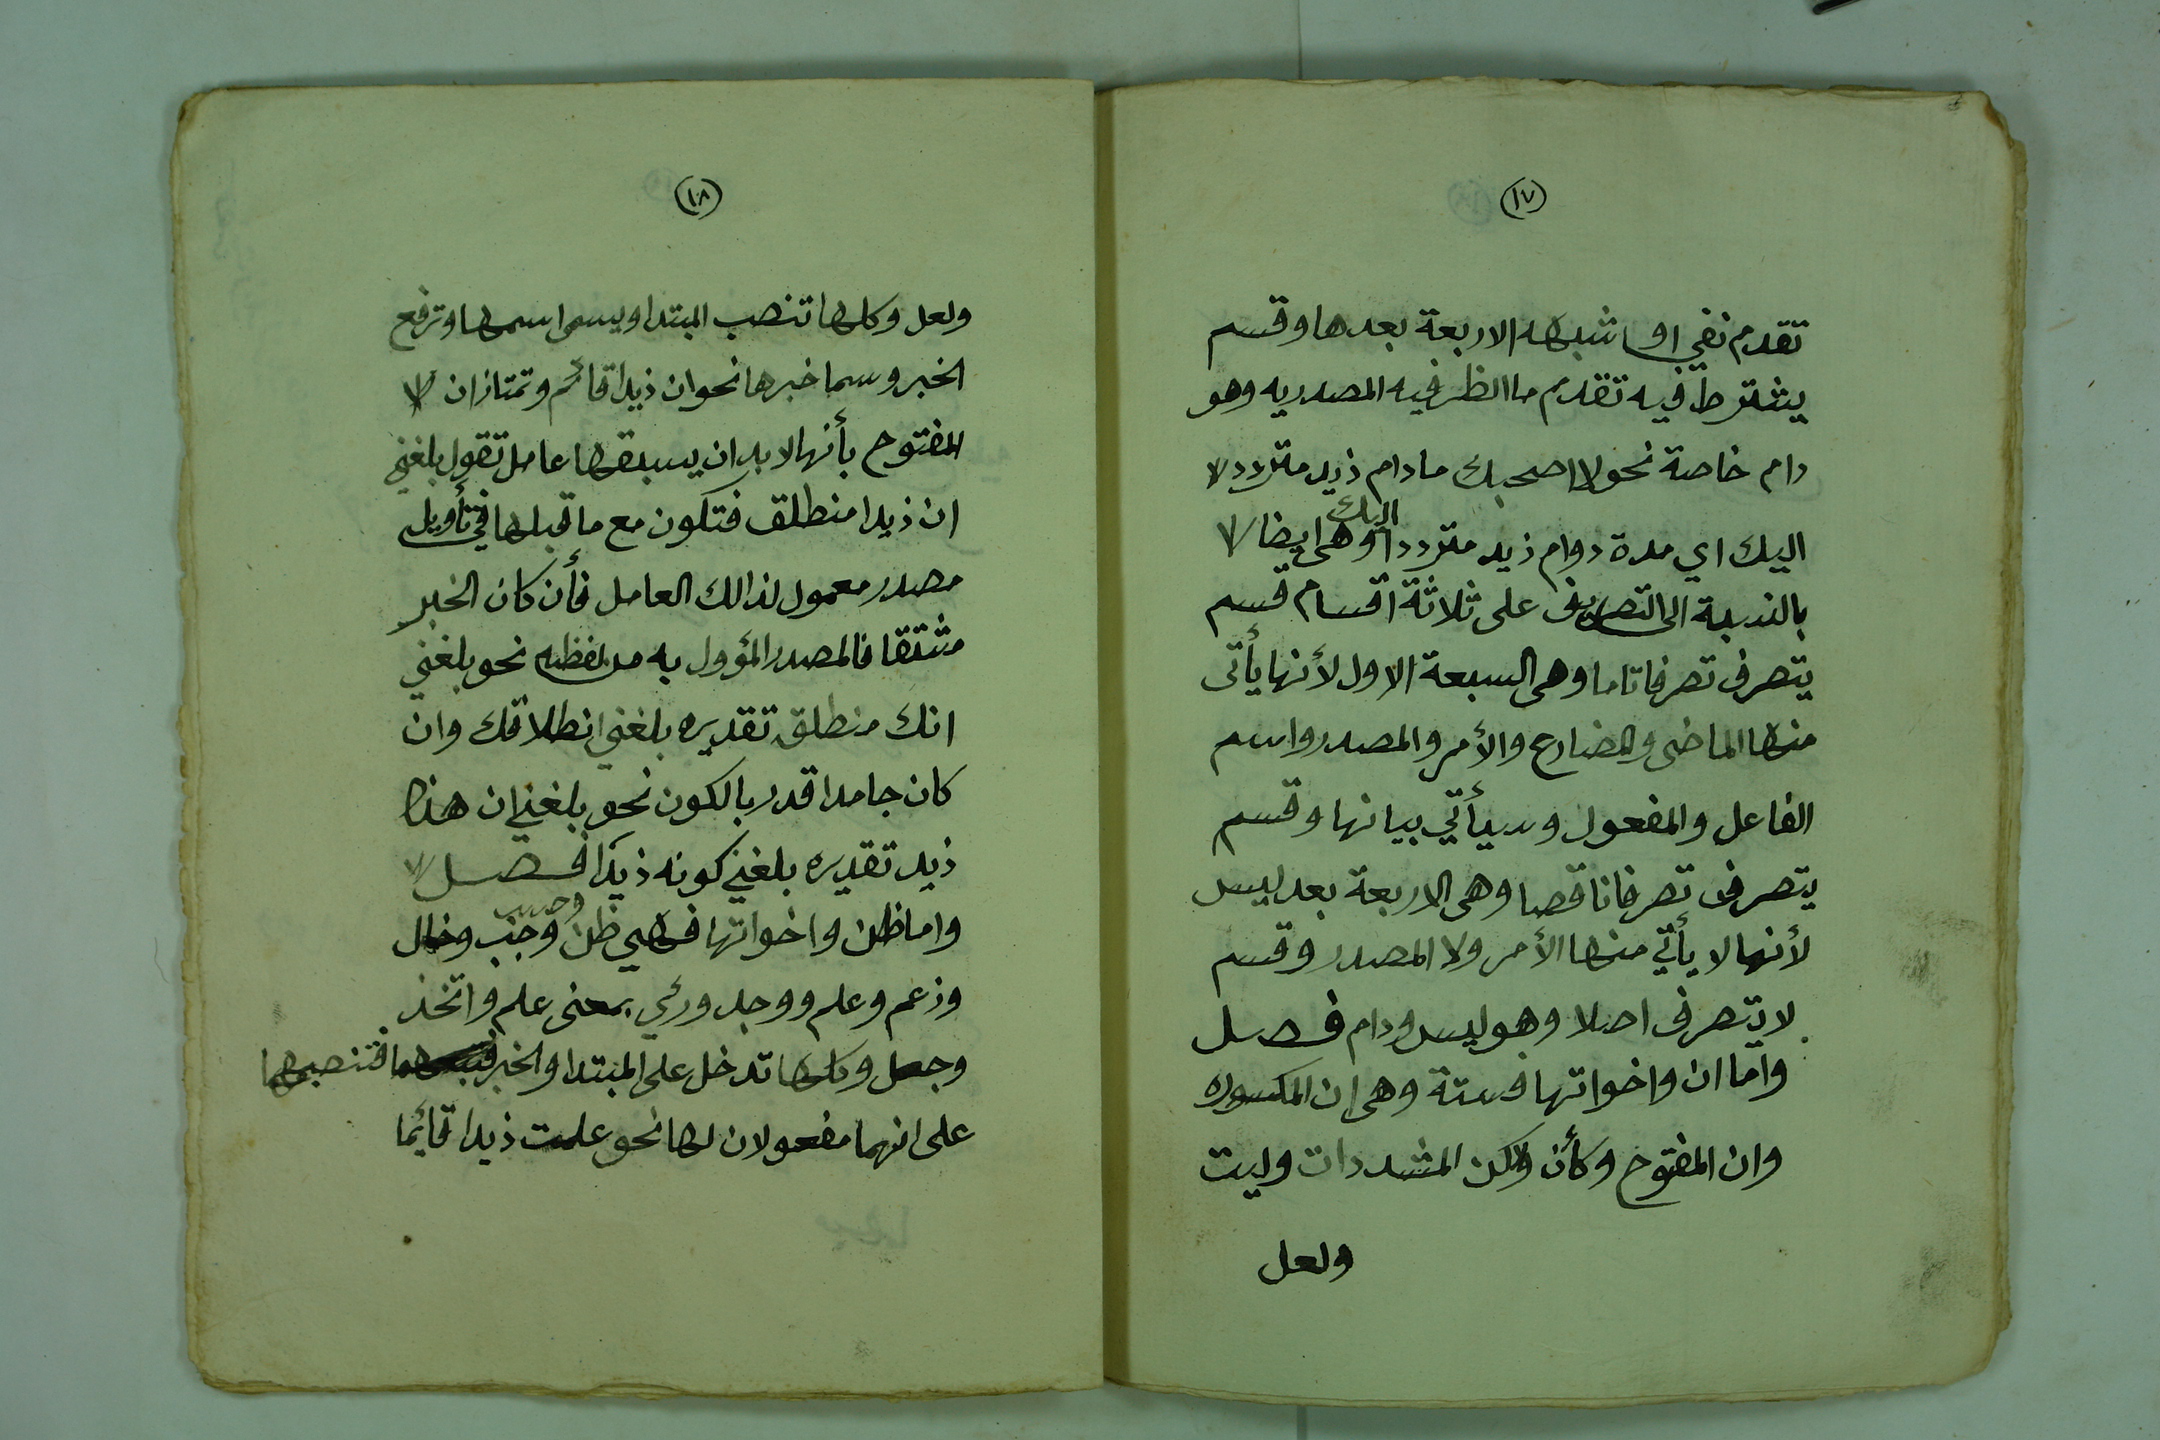 ١٧
تقدم نفي او شبهه الاربعة بعدها وقسم
يشترط فيه تقدم ما الظرفيه المصدريه وهو
دام خاصة نحو لا اصحبك ما دام زيد متردد
اليك
اليك اي مدة دوام زيد مترددا وهى ايضا
بالنسبة الى التصريف على ثلاثة اقسام قسم
يتصرف تصرفا تاما وهى السبعة الاول لأنها يأتى
منها الماضى والمضارع والأمر والمصدر واسم
الفاعل والمفعول وسيأتي بيانها وقسم
يتصرف تصرفا ناقصا وهى الاربعة بعد ليس
لأنها لا يأتي منها الأمر ولا المصدر وقسم
لا يتصرف اصلا وهو ليس ودام فصل
واما ان واخواتها فستة وهى ان المكسوره
وان المفتوح وكأن ولكن المشددات وليت
ولعل
١٨
ولعل وكلها تنصب المبتدا ويسمى اسمها وترفع
الخبر وسما خبرها نحو ان زيدا قائم وتمتاز ان
المفتوح بأنها لا بد ان يسبقها عامل تقول بلغني
ان ذيدا منطلق فتكون مع ما قبلها في تأويل
مصدر معمول لذالك العامل فأن كان الخبر
مشتقا فالمصدر المؤول به من لفظه نحو بلغني
انك منطلق تقديره بلغني انطلاقك وان
كان جامدا قدر بالكون نحو بلغني ان هذا
ذيد تقديره بلغني كونه ذيدا فصل
وحسب
واما ظن واخواتها فهي ظن وخال
وزعم وعلم ووجد ورئي بمعنى علم واتخذ
وجعل وكلها تدخل على المبتدا والخبر فتنصبهما
على انهما مفعولان لها نحو علمت ذيدا قائما